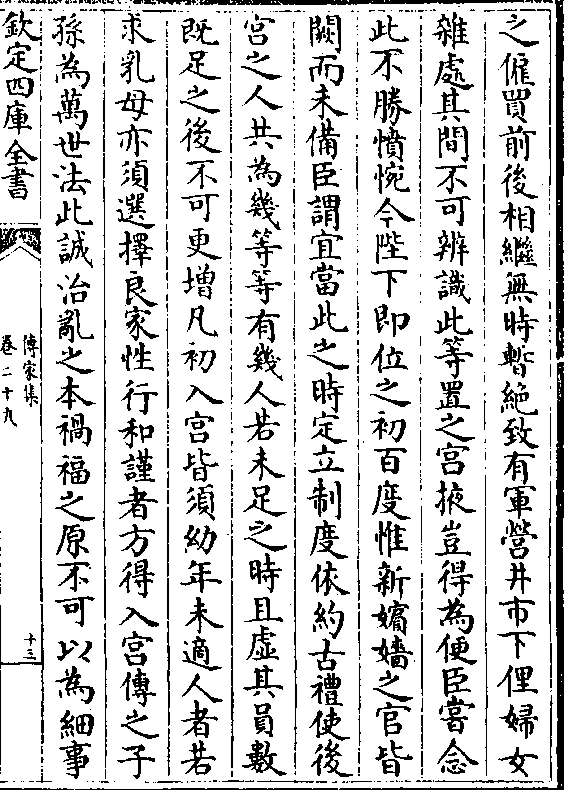 之僱買前後相繼無時暫絶致有軍營井市下俚婦女
雜處其間不可辨識此等置之宮掖豈得為便臣嘗念
此不勝憤惋今陛下即位之初百度惟新嬪嬙之官皆
闕而未備臣謂宜當此之時定立制度依約古禮使後
宮之人共為幾等等有幾人若未足之時且虛其員數
既足之後不可更增凡初入宮皆須幼年未適人者若
求乳母亦須選擇良家性行和謹者方得入宮傳之子
孫為萬世法此誠治亂之本禍福之原不可以為細事
欽定四庫全書
傳家集
卷二十九
十三